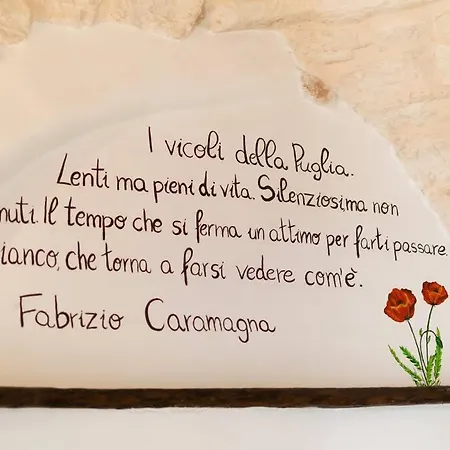 I vicoli della Puglia.
Lenti ma pieni di vita. Silenziosi,ma non
nuti. Il tempo che si ferma un attimo per farti passare.
ianco, che torna a farsi vedere com'è.
Fabrizio Caramagna